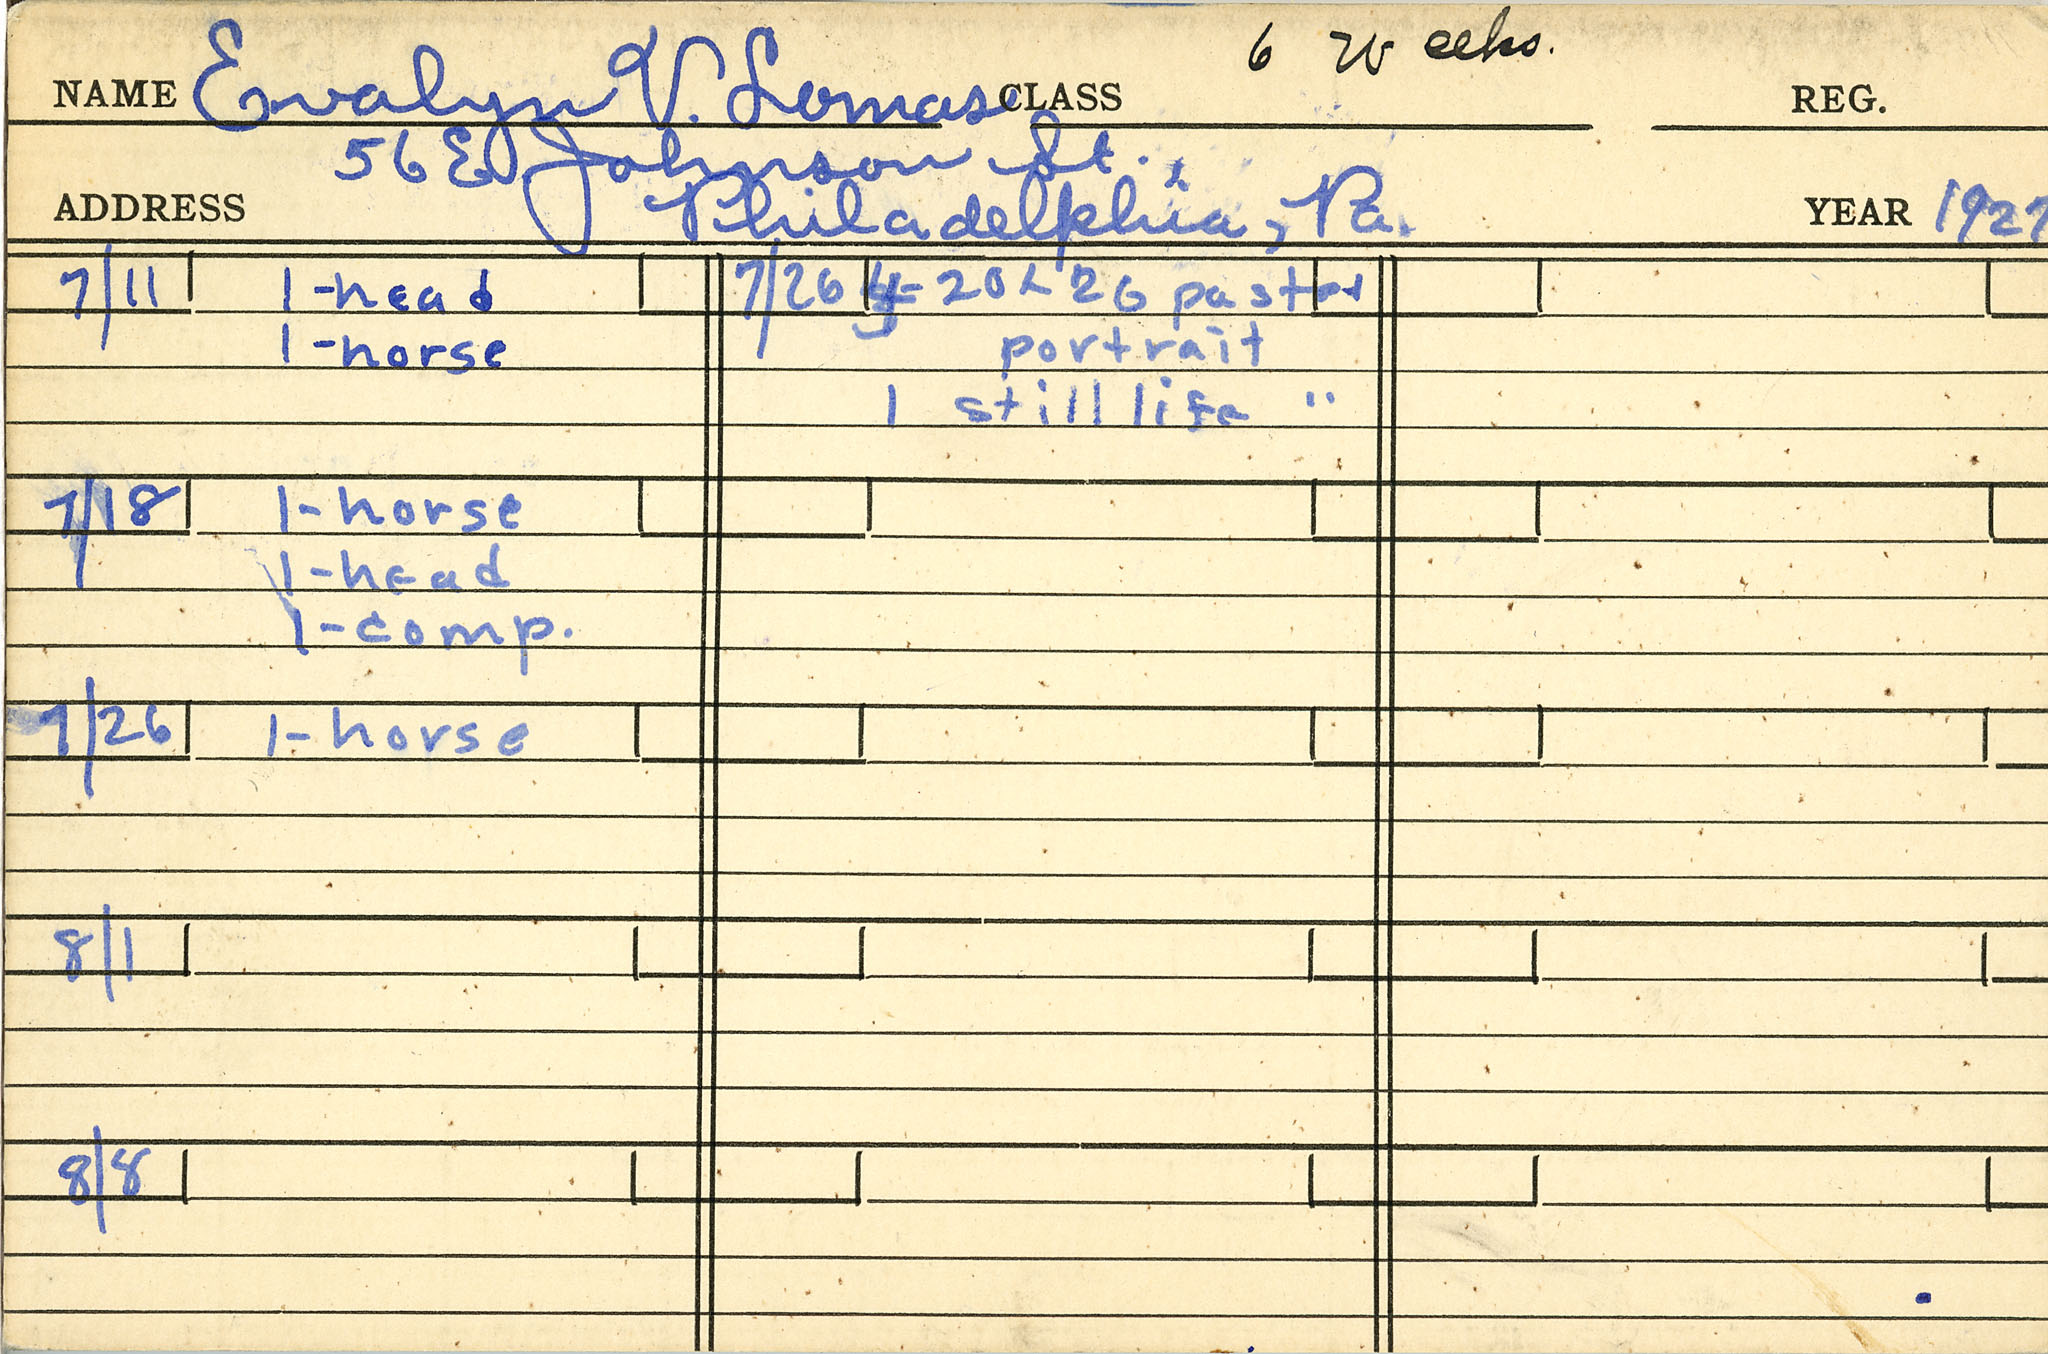 6 Weeks.
NAME Evalyn V. Lomas CLASS REG.
56 E. Johnson St.,
ADDRESS Philadelphia, Pa. YEAR 1927
7/11 1-head 7/26 20 x 26 pastel
1-horse portrait
1 still life "
7/18 1-horse
1-head
1-comp.
7/26 1-horse
8/1
8/8